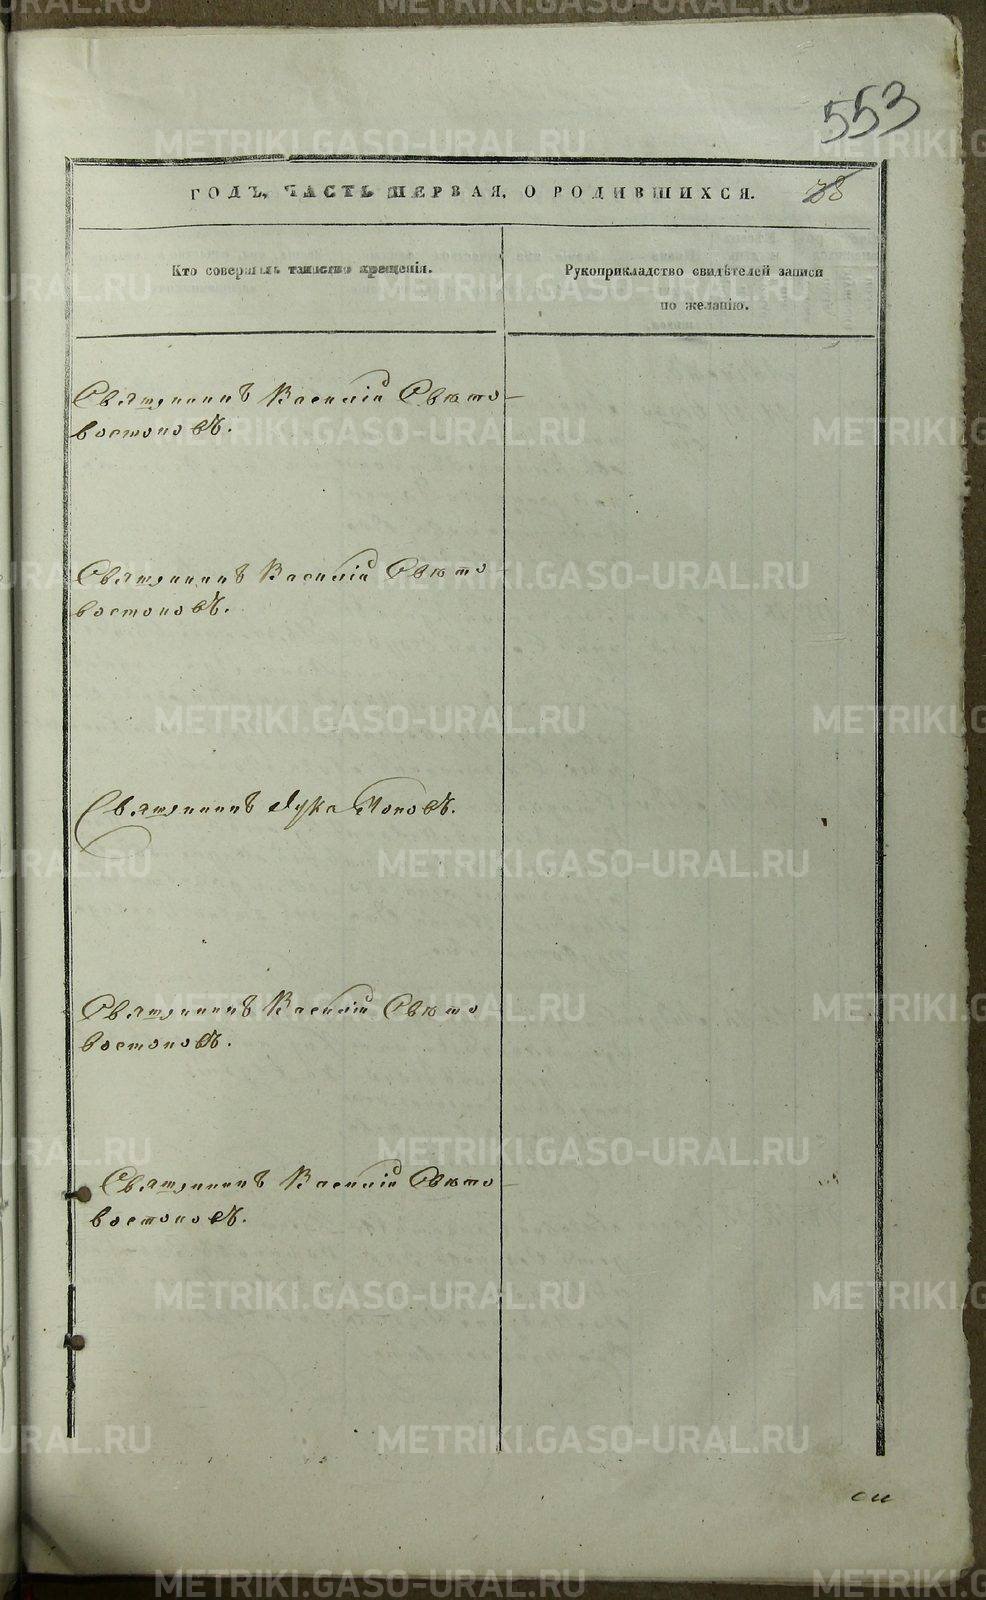 553
ГОДЪ, ЧАСТЬ ПЕРВАЯ, О РОДИВШИХСЯ. 38
Кто совершалъ таинство крещенія.
Рукоприкладство свидѣтелей записи
по желанію.
Священникъ Василій Свѣто-
востоковъ.
Священникъ Василій Свѣто-
востоковъ.
Священникъ Лука Поповъ.
Священникъ Василій Свѣто
востоковъ.
Священникъ Василій Свѣто-
востоковъ.
METRIKI.GASO-URAL.RU